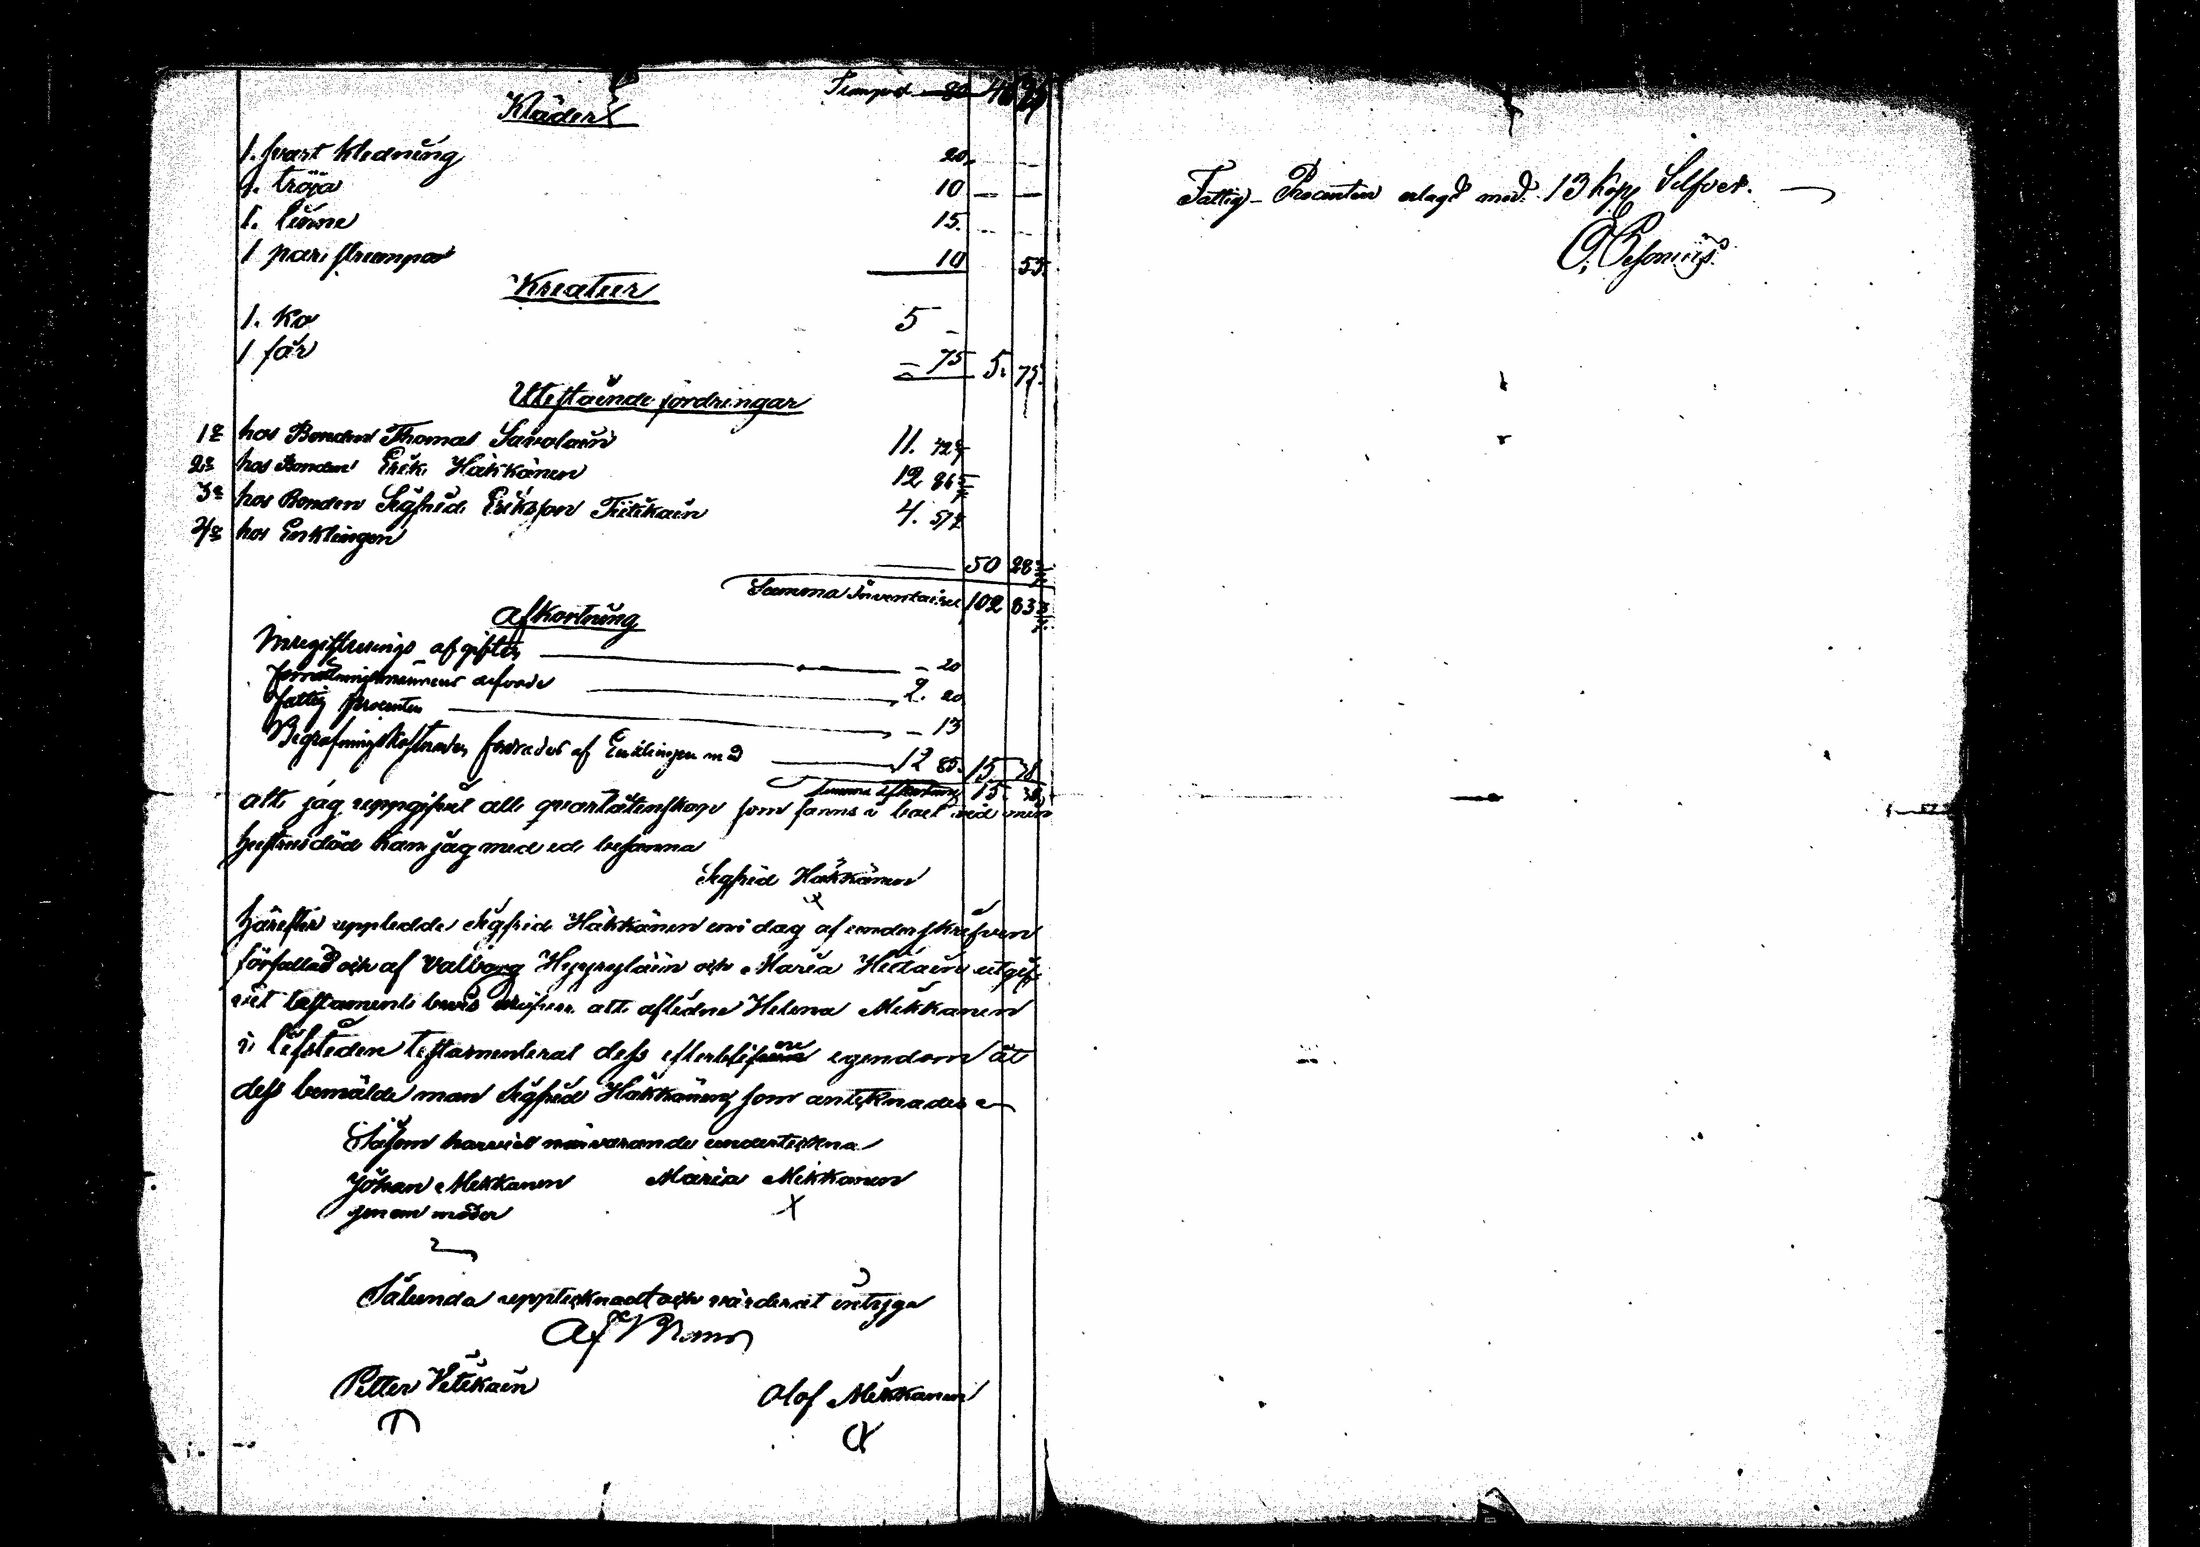 Transport 80 46 25
Kläder
1. svart kledning 20. — —
1. tröja 10 — —
1. linne 15. — —
1 par strumpor 10 55.
Kreatur
1. Ko 5 —
1 får — 75 5. 75.
Utestående fordringar
1o hos Bonden Thomas Savolain 11. 42
2o hos Bonden Erik Häkkänen 12 86
3o hos Bonden Sigfrid Eriksson Tiitikain 4. 57
4o hos Enklingen
50 28
Summa Inventarii 102 83
Afkortning
Inregistrerings afgiften — 20
förrättningsmannens arfvode 2. 20
fattig procenten — 13
Begrafningskostnaden fordrades af Enklingen med 12 85. 15 38
Summa Afkortning 15. 38
att jag uppgifvit all qvarlåtenskap som fanns i boet vid min
hustrus död kan jag med ed besanna
Sigfrid Häkkänen
X
härefter uppledde Sigfrid Häkkänen en i dag af underskrifven
författad och af Valborg Hyyryläin och Maria Hietain utgif-
vit testaments bevis att aflidne Helena Mikkanen
i lifstiden testamenterat dess efterblifvne egendom åt
dess bemälde man Sigfrid Häkkänen, som antecknades
Såsom härvid närvarande underteckna
Johan Mikkanen Maria Mikkanen
genom moder X
Sålunda upptecknadt och värderat intyga
Petter Vitikain Olof Mikkanen
Fattig-Procenten erlagd med 13 kop Silfver. —